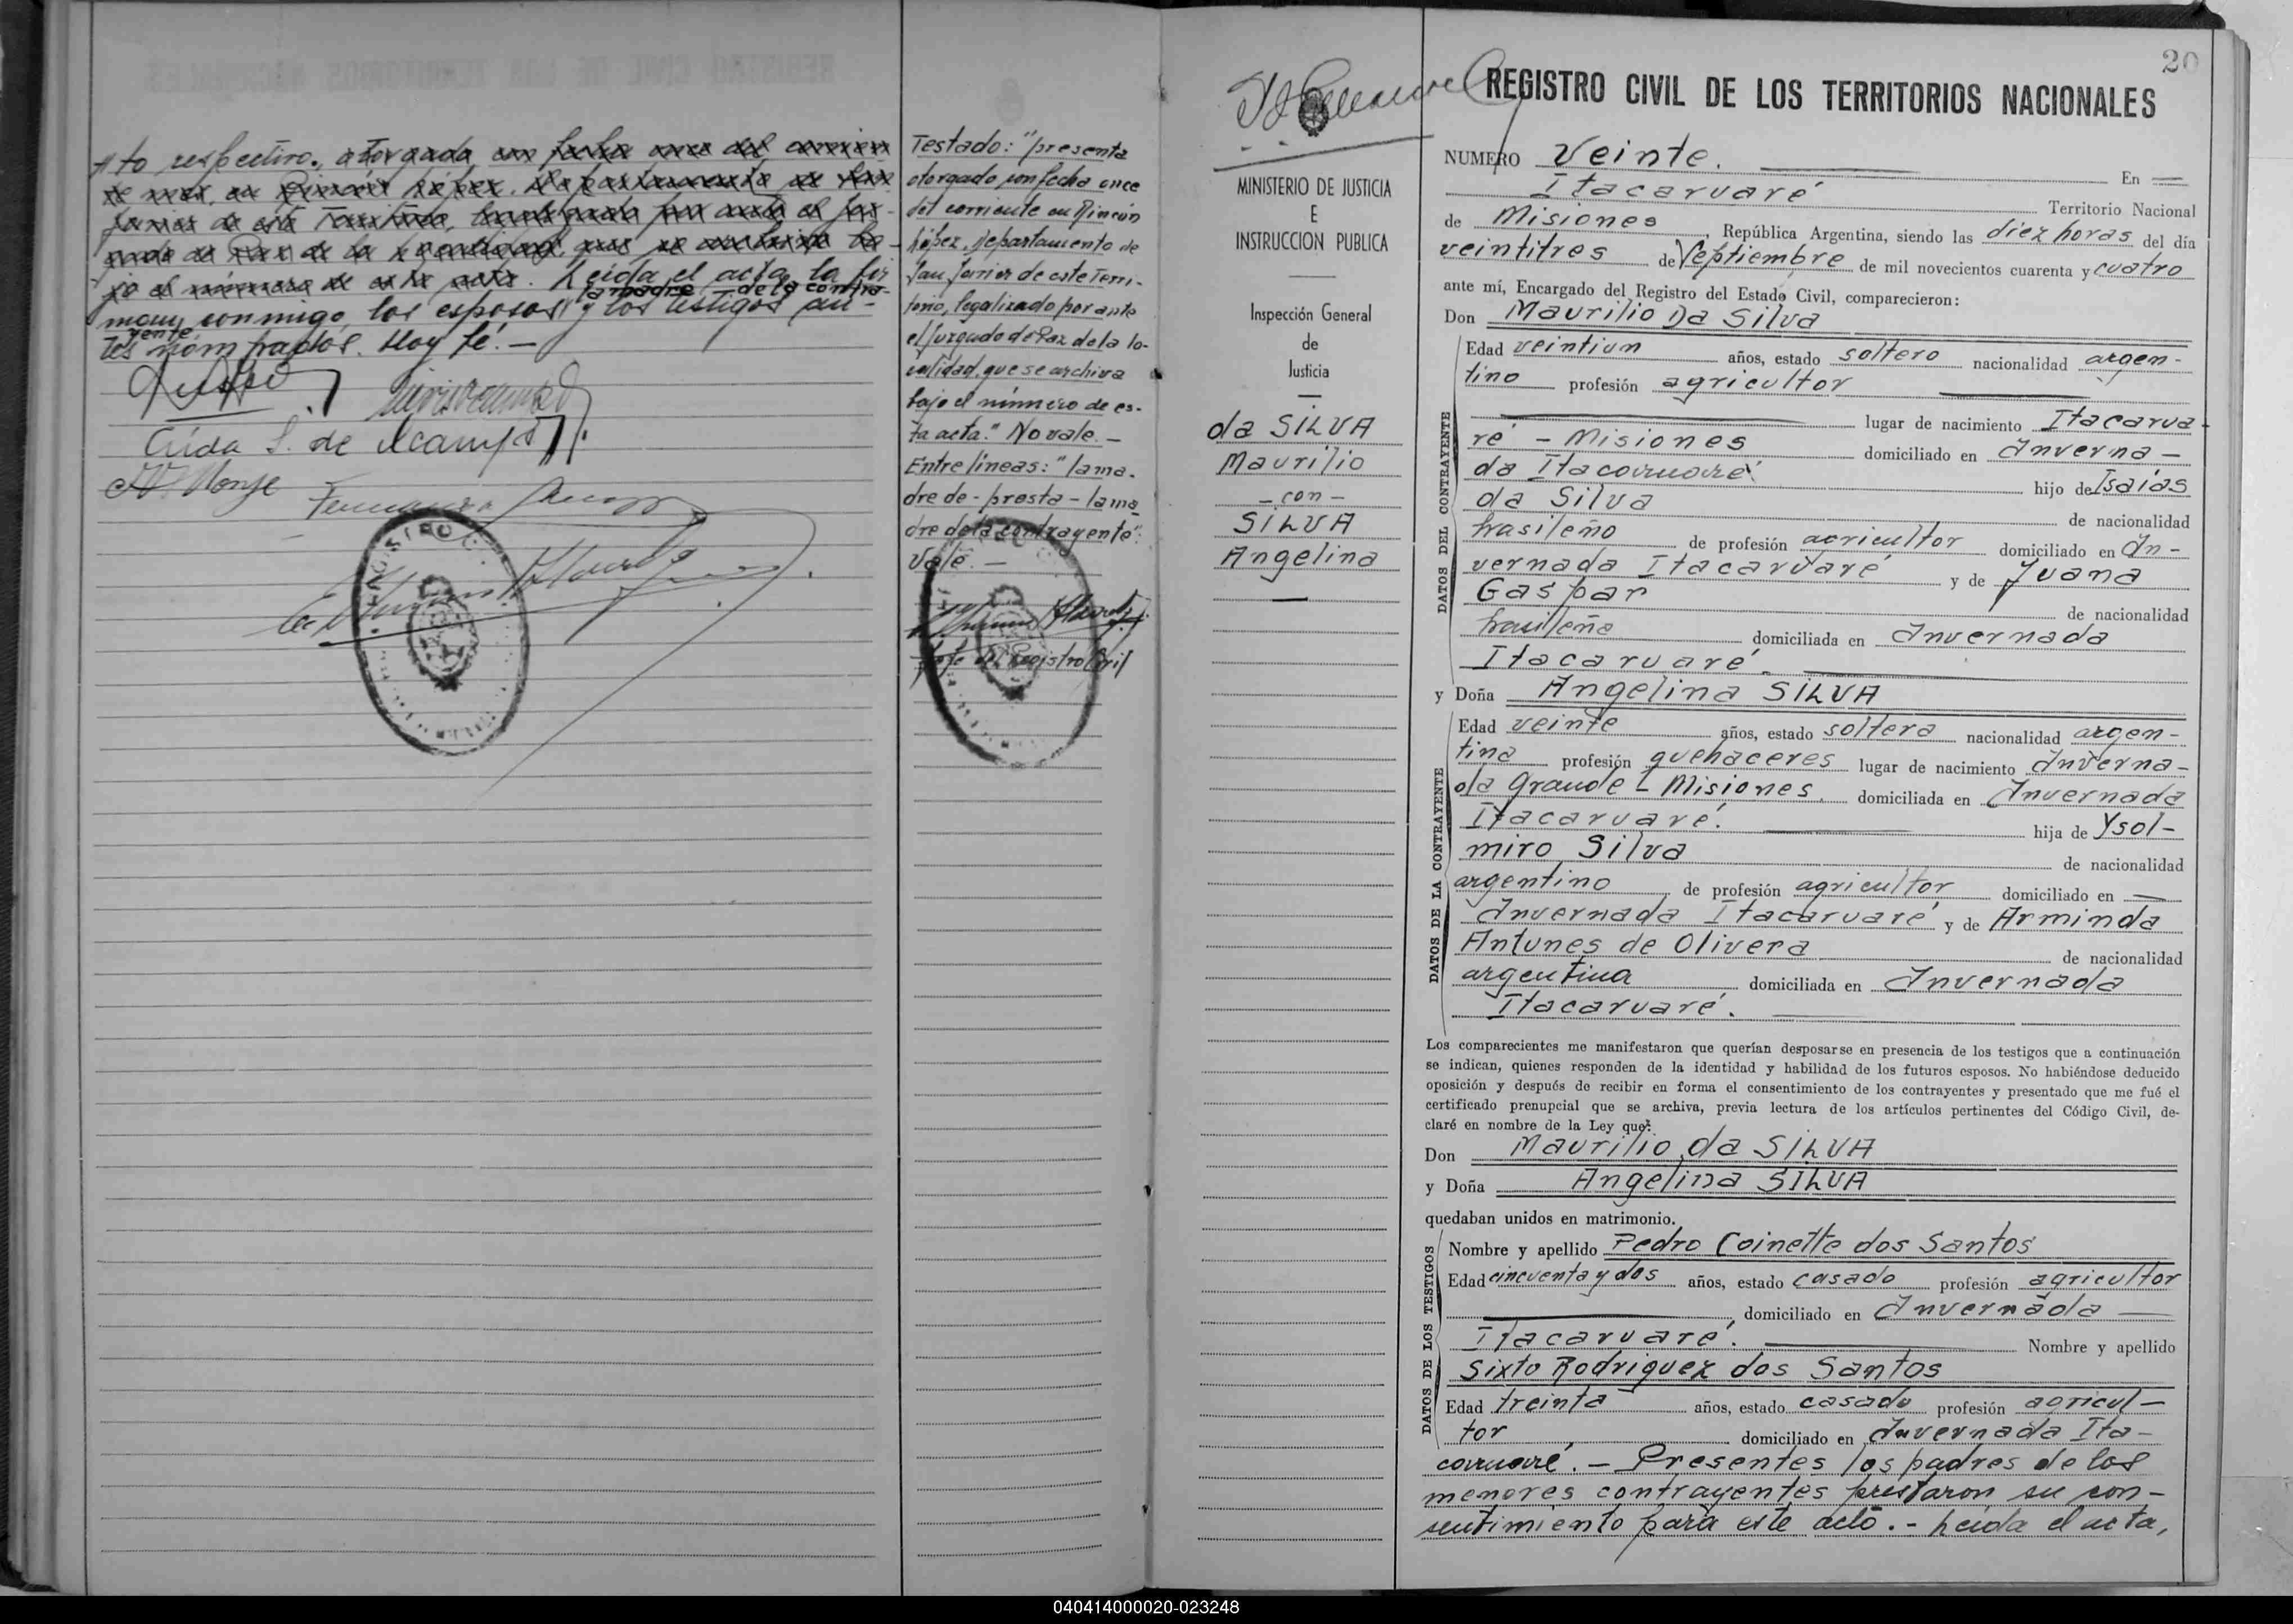 to respectivo, otorgado con fecha once del corrien
te mes, en Rincón López, Departamento de San
Javier de este Territorio, legalizado por ante el Juz-
gado de Paz de la localidad, que se archiva ba-
jo el número de esta acta. Leída el acta, la fir
la madre de la contra-
maron conmigo los esposos y los testigos an-
yente
tes nombrados. Doy fé.—
Aida S. de Ocampo
Testado: "presenta
otorgado con fecha once
del corriente en Rincón
López, Departamento de
San Javier de este Terri-
torio, legalizado por ante
el Juzgado de Paz de la lo-
calidad, que se archiva
bajo el número de es-
ta acta." No vale.—
Entre líneas: "la ma-
dre de - presta - la ma
dre de la contrayente".
Vale.—
Jefe del Registro Civil
20
REGISTRO CIVIL DE LOS TERRITORIOS NACIONALES
MINISTERIO DE JUSTICIA
E
INSTRUCCION PUBLICA
Inspección General
de
Justicia
da SILVA
Maurilio
- con -
SILVA
Angelina
NUMERO Veinte. En
Itacaruaré Territorio Nacional
de Misiones, República Argentina, siendo las diez horas del día
veintitres de Septiembre de mil novecientos cuarenta y cuatro
ante mí, Encargado del Registro del Estado Civil, comparecieron:
Don Maurilio Da Silva
DATOS DEL CONTRAYENTE
Edad veintiun años, estado soltero nacionalidad argen-
tino profesión agricultor
lugar de nacimiento Itacarua-
ré - Misiones domiciliado en Inverna-
da Itacaruaré hijo de Isaías
da Silva de nacionalidad
brasileño de profesión agricultor domiciliado en In-
vernada Itacaruaré y de Juana
Gaspar de nacionalidad
brasileña domiciliada en Invernada
Itacaruaré.
y Doña Angelina SILVA
DATOS DE LA CONTRAYENTE
Edad veinte años, estado soltera nacionalidad argen-
tina profesión quehaceres lugar de nacimiento Inverna-
da Grande - Misiones. domiciliada en Invernada
Itacaruaré. hija de Ysol-
miro Silva de nacionalidad
argentino de profesión agricultor domiciliado en —
Invernada Itacaruaré y de Arminda
Antunes de Olivera de nacionalidad
argentina domiciliada en Invernada
Itacaruaré.
Los comparecientes me manifestaron que querían desposarse en presencia de los testigos que a continuación
se indican, quienes responden de la identidad y habilidad de los futuros esposos. No habiéndose deducido
oposición y después de recibir en forma el consentimiento de los contrayentes y presentado que me fué el
certificado prenupcial que se archiva, previa lectura de los artículos pertinentes del Código Civil, de-
claré en nombre de la Ley que:
Don Maurilio da SILVA
y Doña Angelina SILVA
quedaban unidos en matrimonio.
DATOS DE LOS TESTIGOS
Nombre y apellido Pedro Coinette dos Santos
Edad cincuenta y dos años, estado casado profesión agricultor
, domiciliado en Invernada
Itacaruaré. Nombre y apellido
Sixto Rodriguez dos Santos
Edad treinta años, estado casado profesión agricul-
tor domiciliado en Invernada Ita-
caruaré. — Presentes los padres de los
menores contrayentes prestaron su con-
sentimiento para este acto. - Leída el acta,
040414000020-023248